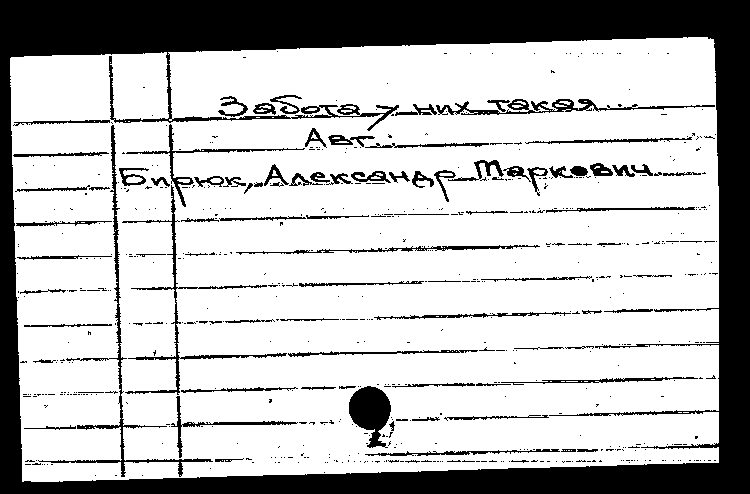 Забота у них такая...
Авт.:
Бирюк, Александр Маркович